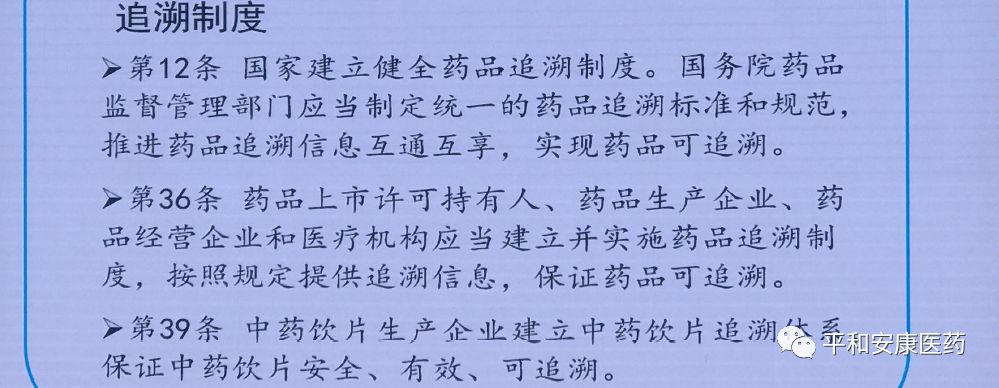 追溯制度
➤第12条 国家建立健全药品追溯制度。国务院药品
监督管理部门应当制定统一的药品追溯标准和规范，
推进药品追溯信息互通互享，实现药品可追溯。
➤第36条 药品上市许可持有人、药品生产企业、药
品经营企业和医疗机构应当建立并实施药品追溯制
度，按照规定提供追溯信息，保证药品可追溯。
➤第39条 中药饮片生产企业建立中药饮片追溯体系
保证中药饮片安全、有效、可追溯。
平和安康医药